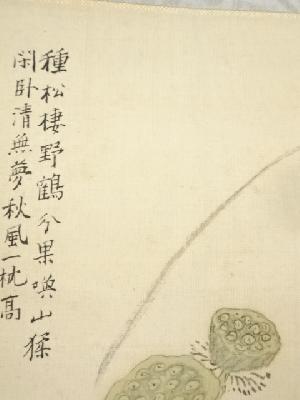 種松棲野鶴分果喚山猱
閑卧清無夢秋風一枕高